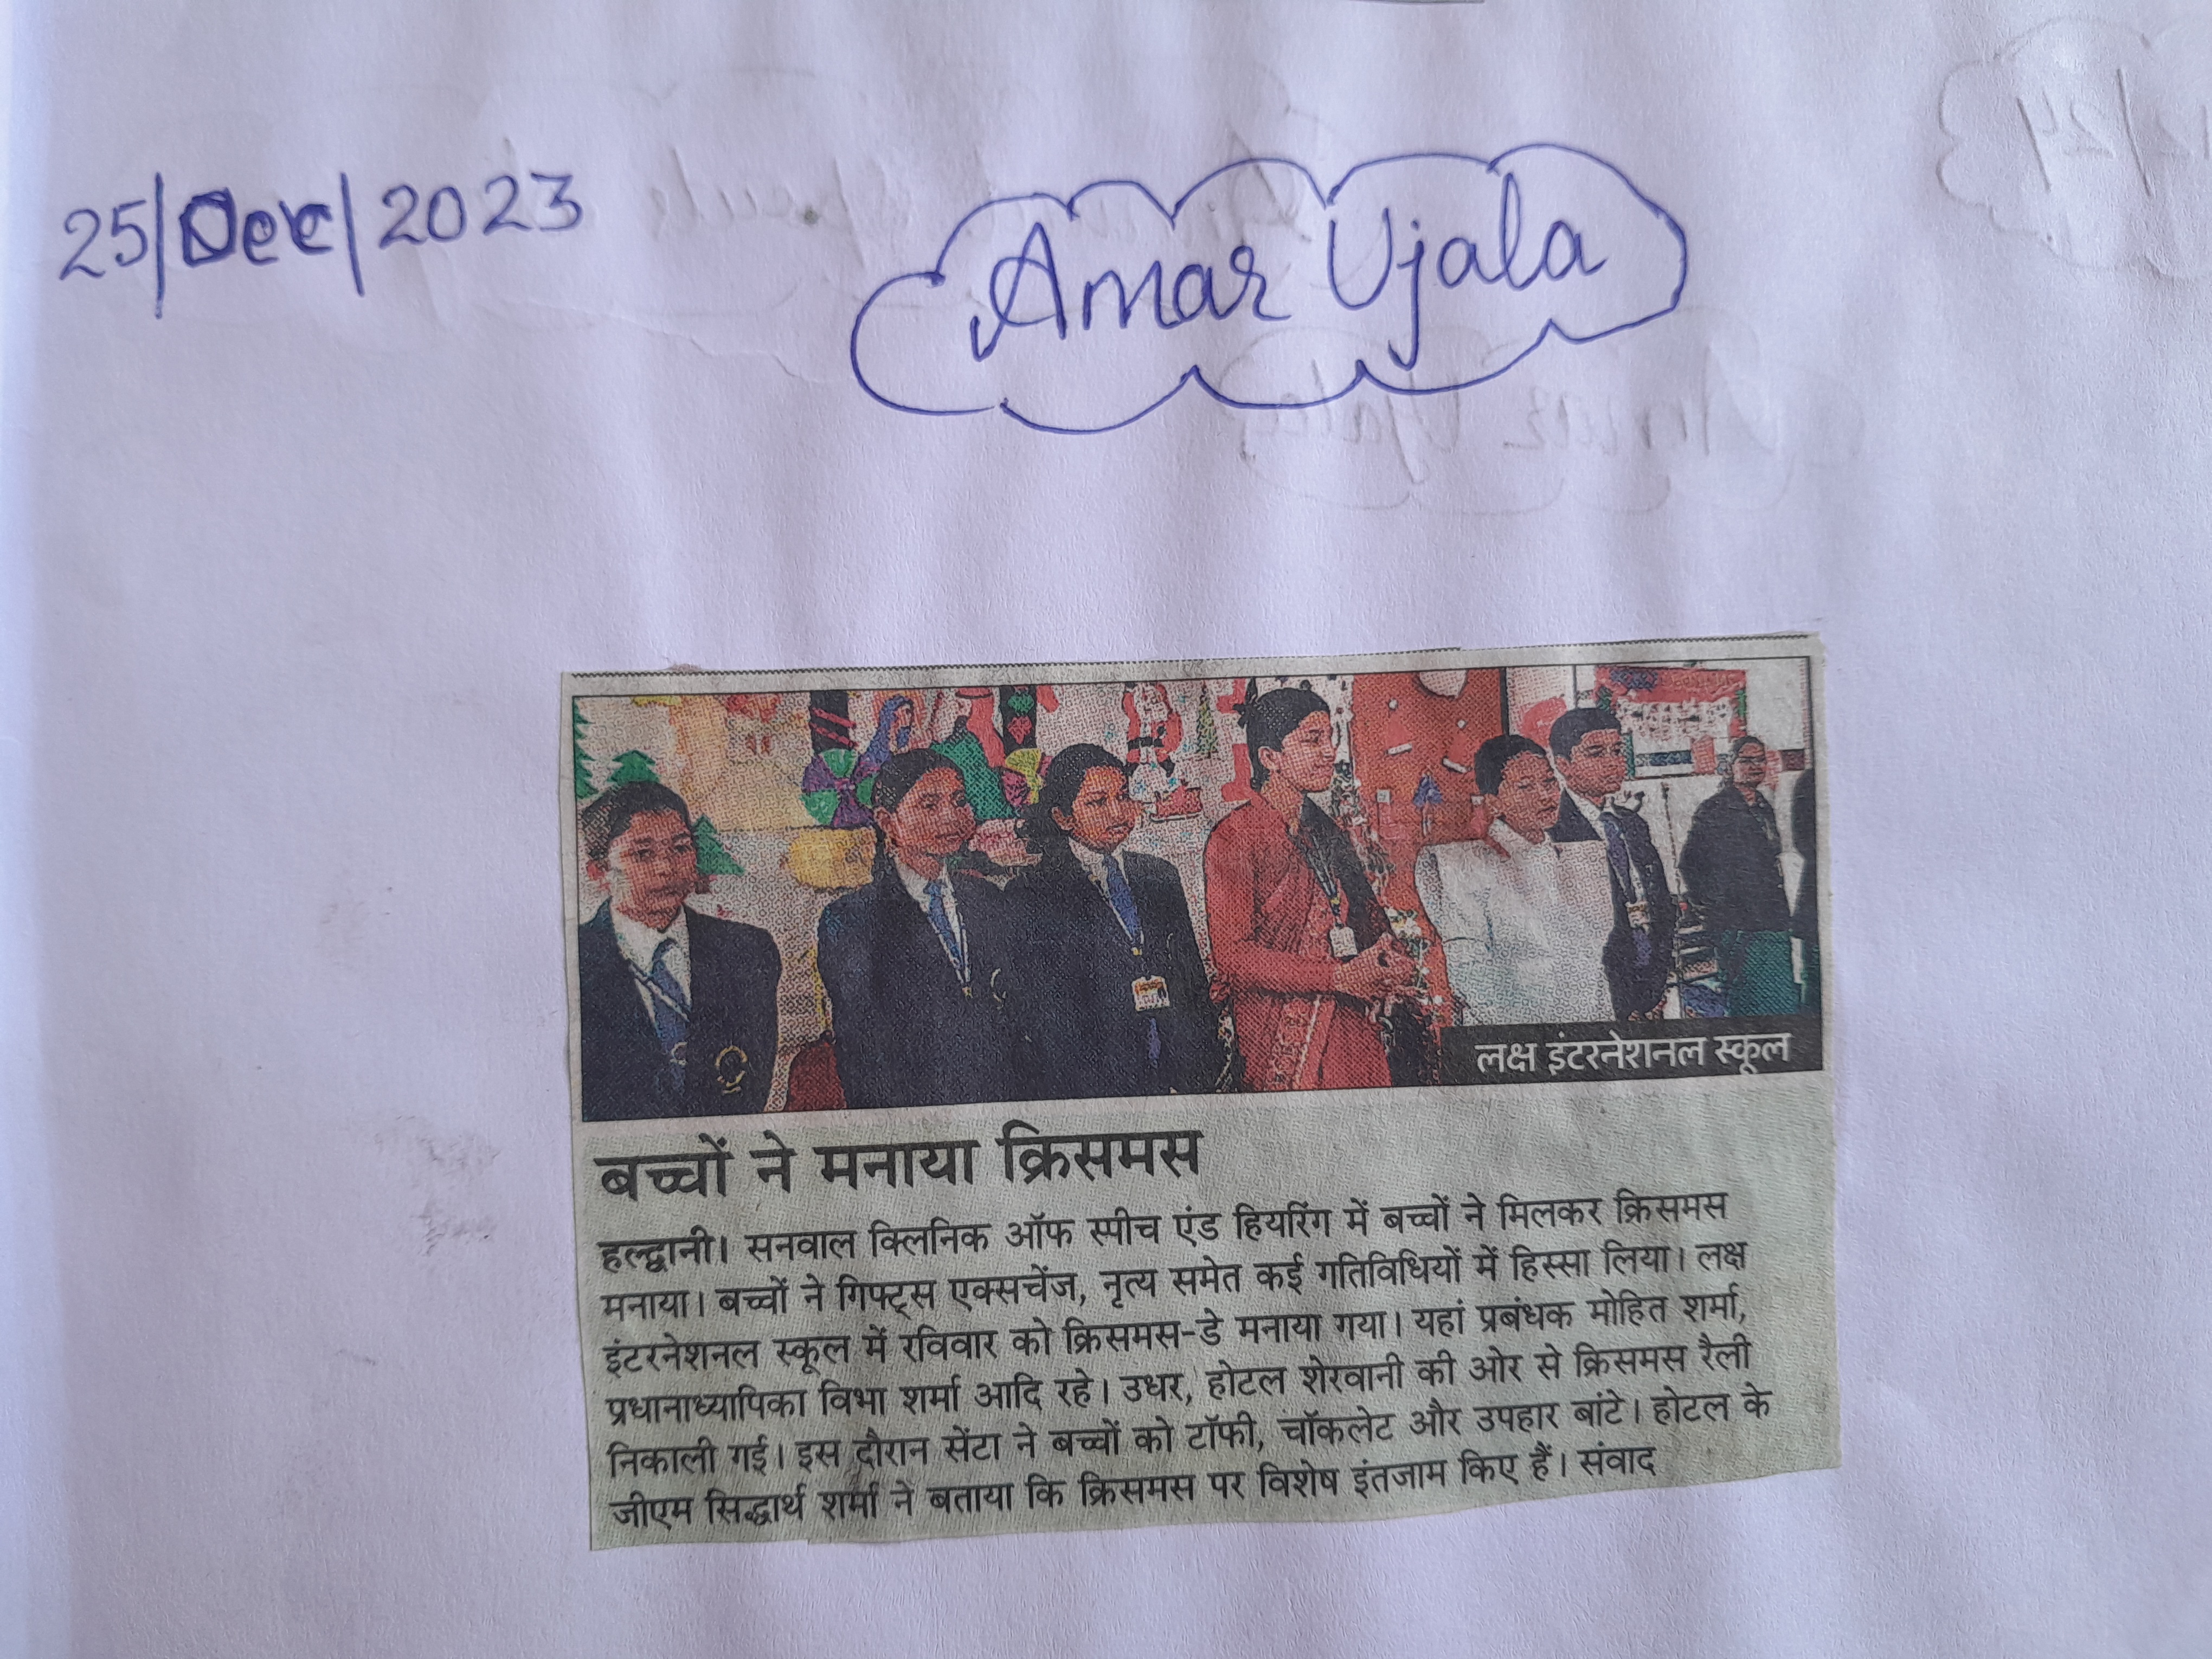 25/Dec/2023
Amar Ujala
लक्ष इंटरनेशनल स्कूल
बच्चों ने मनाया क्रिसमस
हल्द्वानी। सनवाल क्लिनिक ऑफ स्पीच एंड हियरिंग में बच्चों ने मिलकर क्रिसमस
मनाया। बच्चों ने गिफ्ट्स एक्सचेंज, नृत्य समेत कई गतिविधियों में हिस्सा लिया। लक्ष
इंटरनेशनल स्कूल में रविवार को क्रिसमस-डे मनाया गया। यहां प्रबंधक मोहित शर्मा,
प्रधानाध्यापिका विभा शर्मा आदि रहे। उधर, होटल शेरवानी की ओर से क्रिसमस रैली
निकाली गई। इस दौरान सेंटा ने बच्चों को टॉफी, चॉकलेट और उपहार बांटे। होटल के
जीएम सिद्धार्थ शर्मा ने बताया कि क्रिसमस पर विशेष इंतजाम किए हैं। संवाद